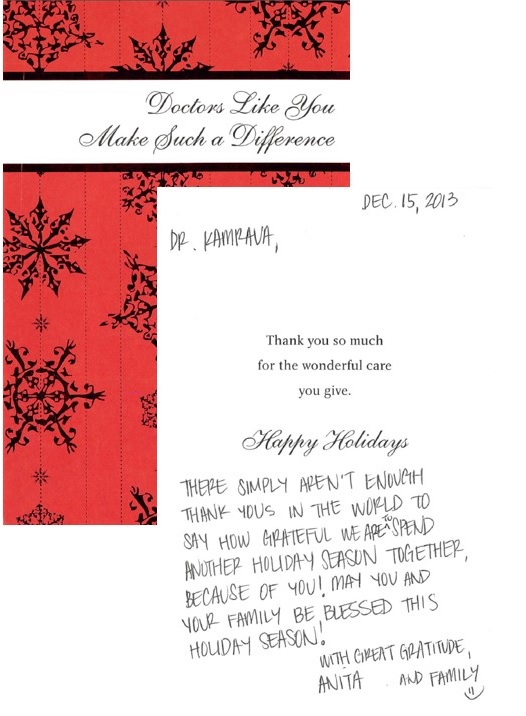 Doctors Like You
Make Such a Difference
DEC. 15, 2013
DR. KAMRAVA,
Thank you so much
for the wonderful care
you give.
Happy Holidays
THERE SIMPLY AREN'T ENOUGH
THANK YOUS IN THE WORLD TO
SAY HOW GRATEFUL WE ARE TO SPEND
ANOTHER HOLIDAY SEASON TOGETHER,
BECAUSE OF YOU! MAY YOU AND
YOUR FAMILY BE BLESSED THIS
HOLIDAY SEASON!
WITH GREAT GRATITUDE,
ANITA AND FAMILY